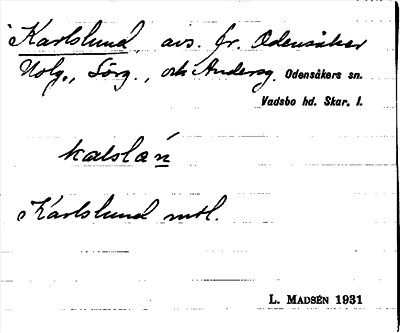 Karlslund, avs. fr. Odensåker
Holg., Sörg., och Andersg. Odensåkers sn.
Vadsbo hd. Skar. l.
kalslán
Karlslund mtl.
L. MADSÉN 1931